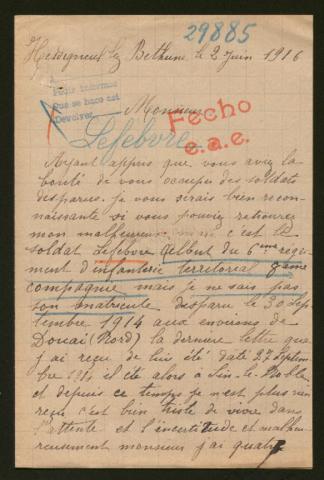 29885
lez Bethune le 2 Juin 1916
Para informes
Que se hace est
Devolver
Monsieur
Fecho
e.a.e.
Lefebvre
Ayant appris que vous aviez la
bonté de vous occuper des soldats
disparus. je vous serais bien recon
naissante si vous pouviez retrouver
mon malheureux mari c'est le
soldat Lefebvre Albert du 6eme regi
ment d'infanterie territorial 8eme
compagnie mais je ne sais pas
son matricule disparu le 30 Sep
tembre 1914 aux environs de
Douai (Nord) la derniere lettre que
j'ai reçu de lui été daté 27 Septem
bre 1914 il été alors à Sin-le-Noble
et depuis ce temps je n'est plus rien
reçu c'est bien triste de vivre dans
l'attente et l'incertitude et malheu
reusement monsieur j'ai quatre